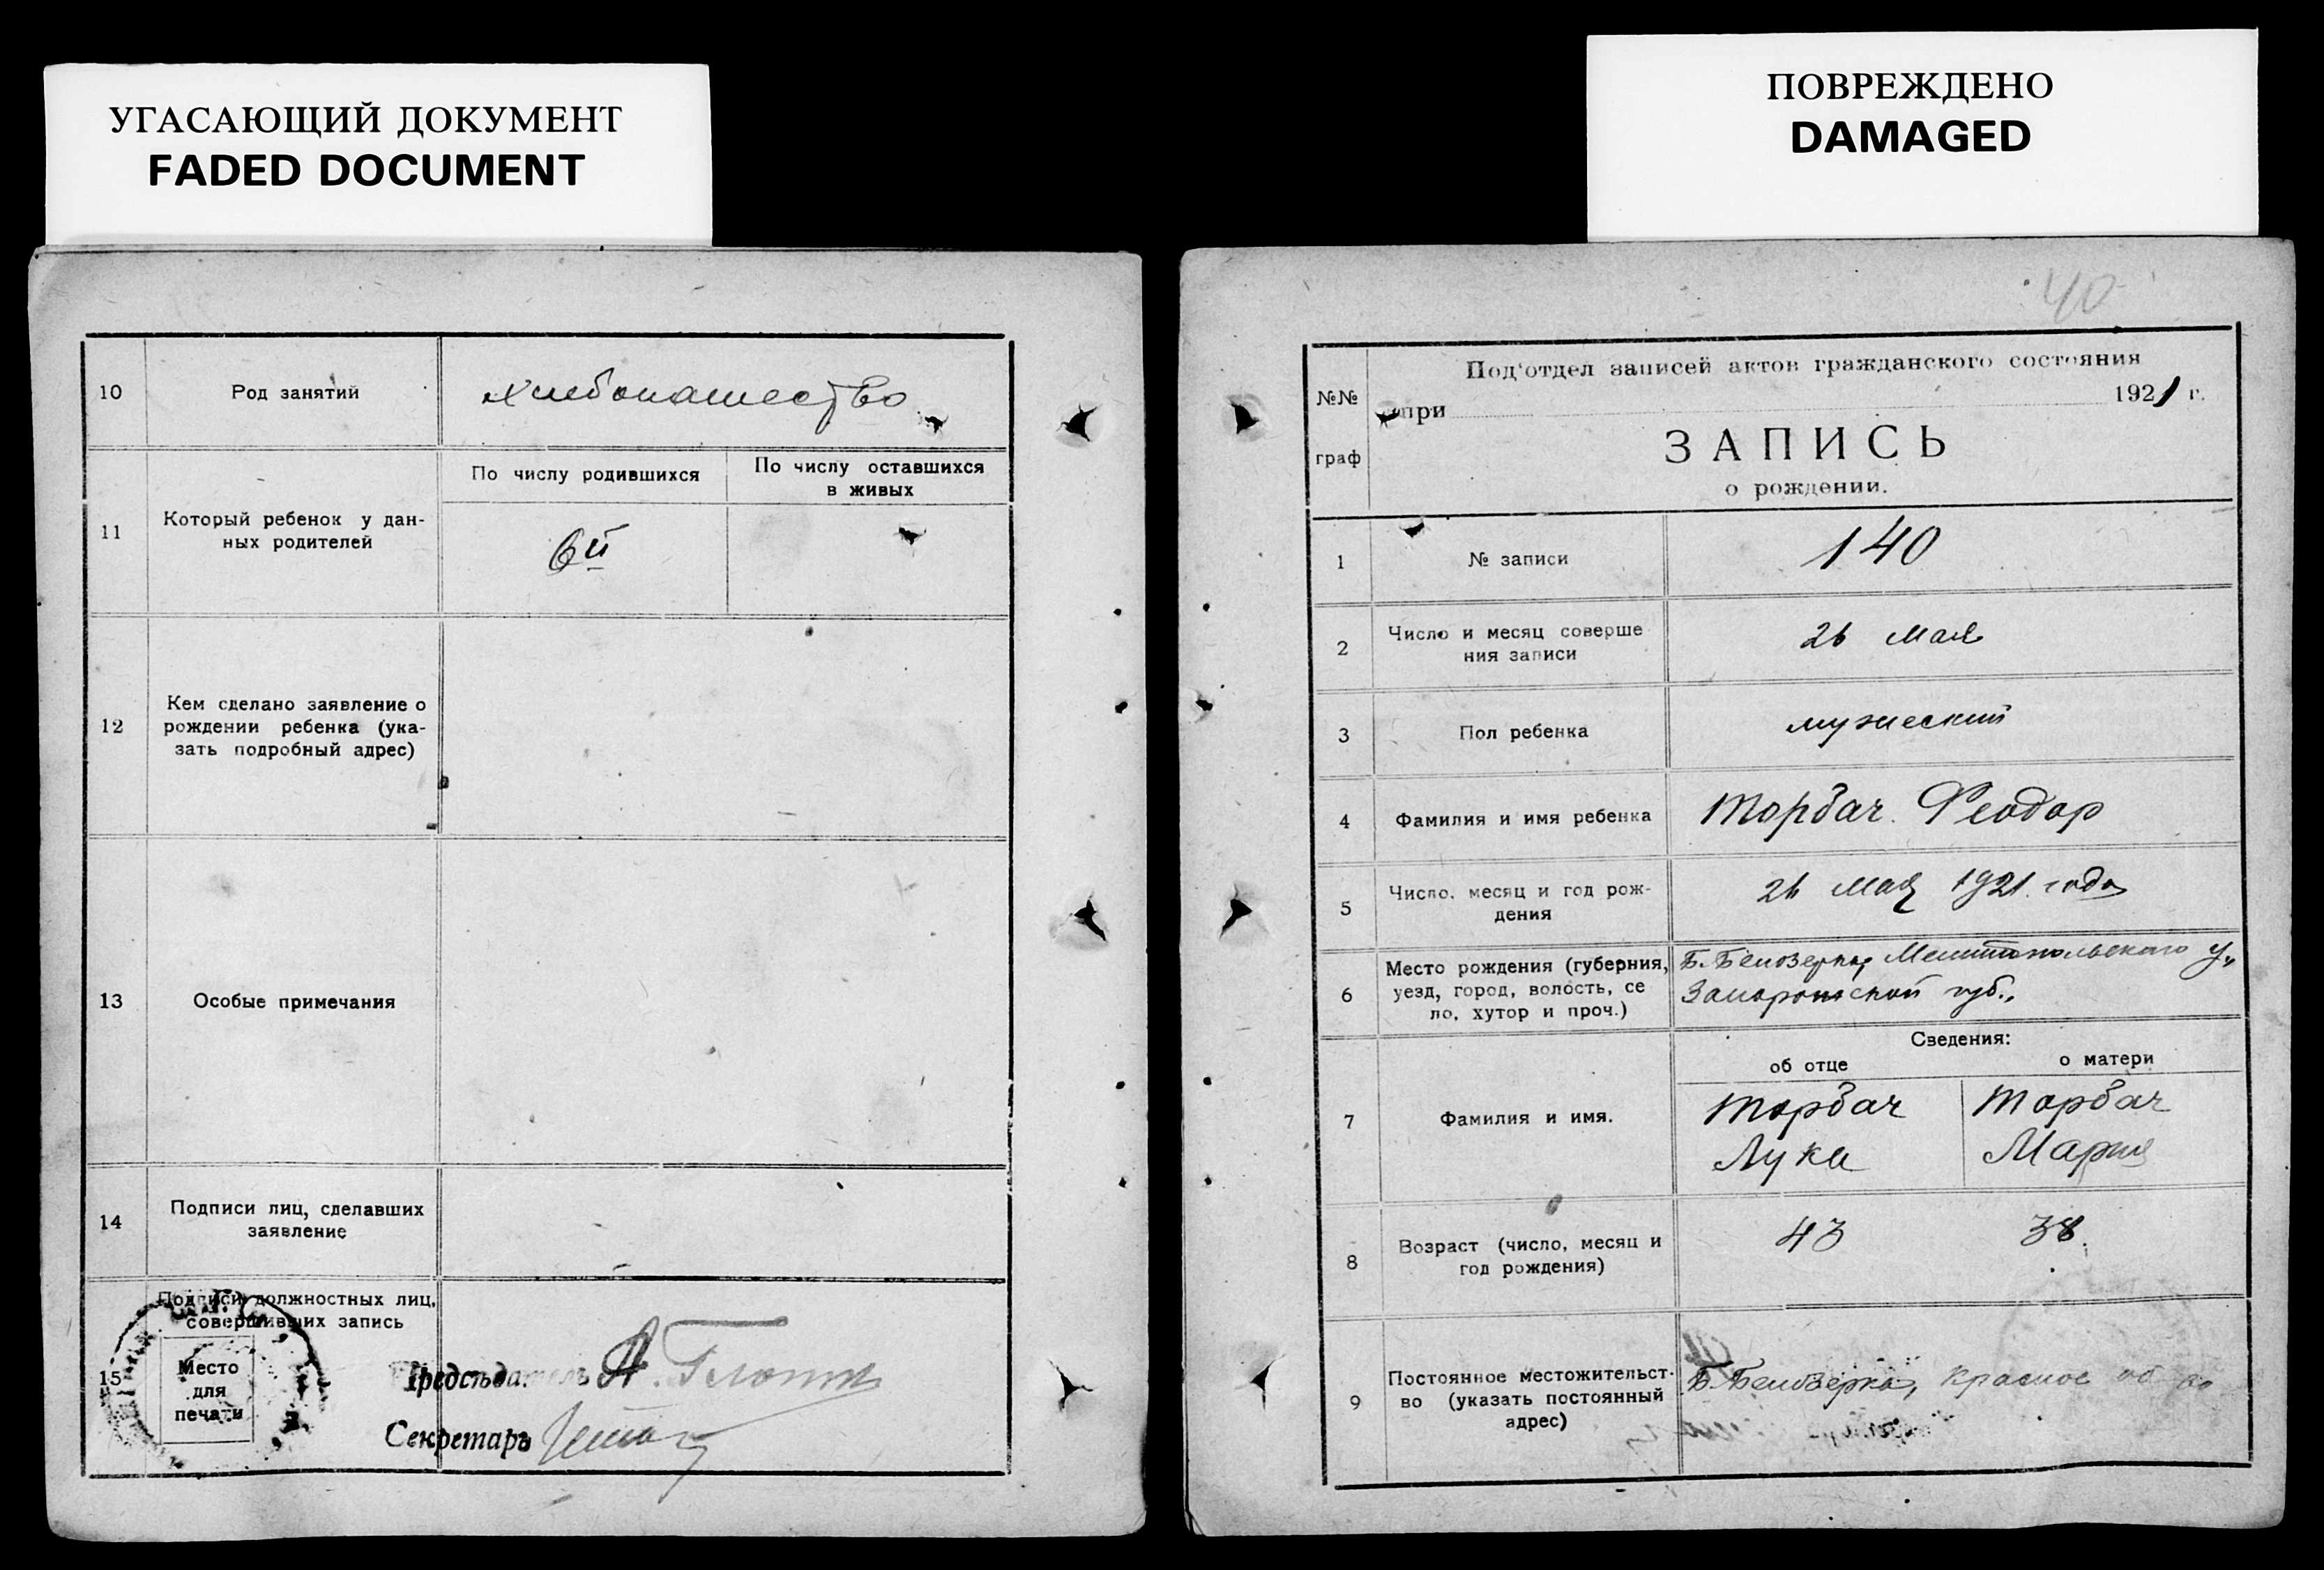 УГАСАЮЩИЙ ДОКУМЕНТ
FADED DOCUMENT
10
Род занятий
хлебопашество
11
Который ребенок у дан-
ных родителей
По числу родившихся
По числу оставшихся
в живых
6й
12
Кем сделано заявление о
рождении ребенка (ука-
зать подробный адрес)
13
Особые примечания
14
Подписи лиц, сделавших
заявление
15
Подписи должностных лиц,
совершивших запись
Место
для
печати
Предсѣдатель А.
Секретарь
ПОВРЕЖДЕНО
DAMAGED
40
№№
граф
Под'отдел записей актов гражданского состояния
при 1921 г.
ЗАПИСЬ
о рождении.
1
№ записи
140
2
Число и месяц соверше
ния записи
26 мая
3
Пол ребенка
мужеский
4
Фамилия и имя ребенка
Торбач. Феодор
5
Число, месяц и год рож-
дения
26 мая 1921 года
6
Место рождения (губерния,
уезд, город, волость, се
ло, хутор и проч.)
Б. Белозерка, Мелитопольского у.,
Запорожской губ.,
Сведения:
об отце
о матери
7
Фамилия и имя.
Торбач
Лука
Торбач
Мария
8
Возраст (число, месяц и
год рождения)
43
38.
9
Постоянное местожительст-
во (указать постоянный
адрес)
Б. Белозерка, Красное об-во